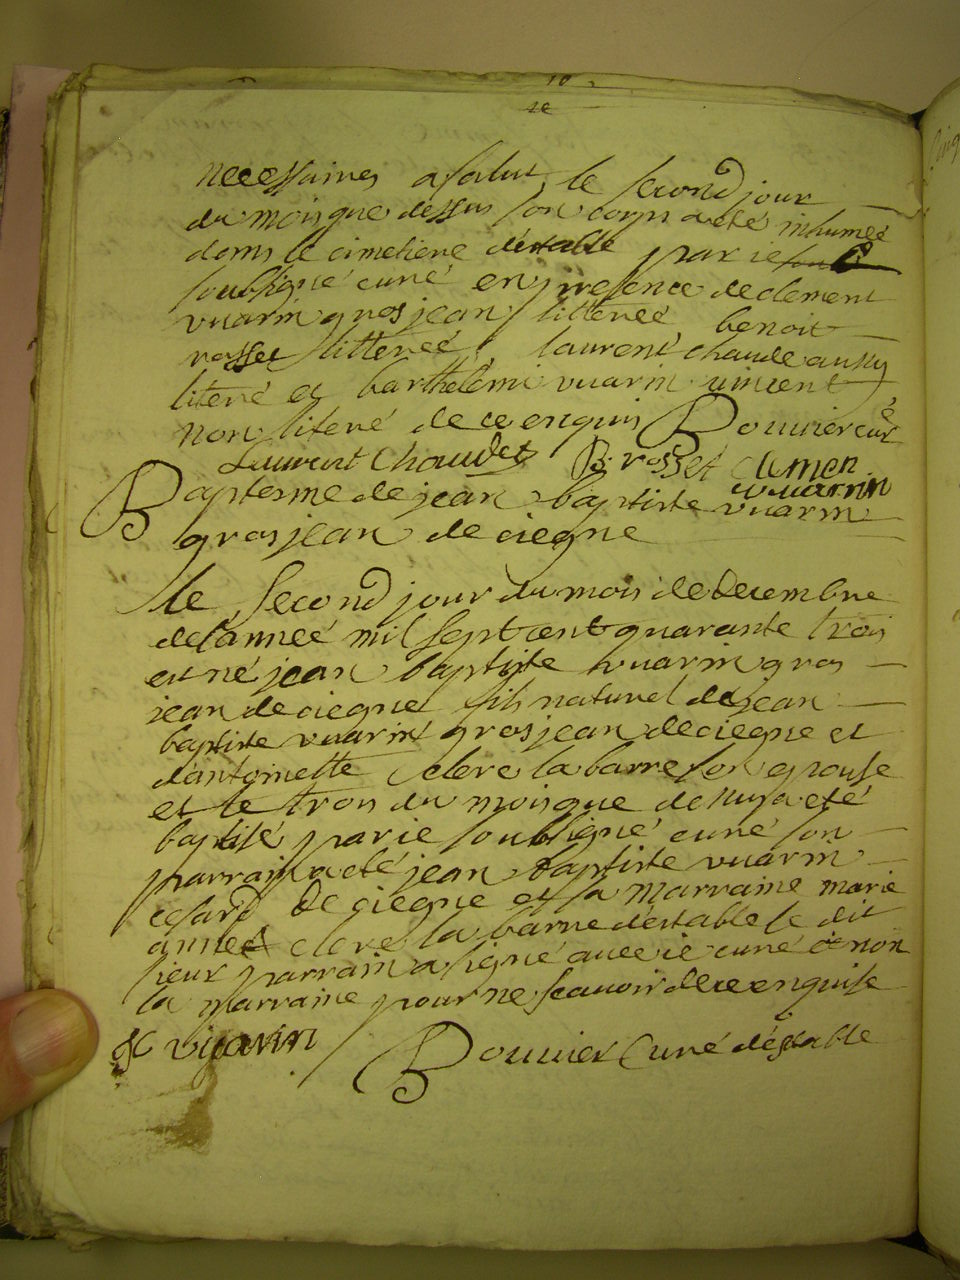 10
10
necessaires asalut le second jour
du mois que dessus son corps a eté inhumeé
dans le cimetiere destable par ie
soubsigné curé en presence de clement
vuarin gros jean litteréé, benoit
rosset litteréé, laurent chaude ausy
literé et barthelemi vuarin vincent
non literé de ce enquis Bouvier curé
Laurent Chaudet B: rosset clemen
vuarin
Baptesme de jean baptiste vuarin
gros jean de ciegne
le second jour du mois de decembre
de lanneé mil sept cent quarante trois
est né jean baptiste vuarin gros
jean de ciegne fils naturel de jean
baptiste vuarin gros jean de ciegne et
dantoinette clerc la barre son epouse
et le trois du mois que dessus a eté
baptisé par ie soubsigné curé son
parrain a eté jean baptiste vuarin
cesard de ciegne et sa marraine marie
anneé clerc la barre destable le dit
sieur parrain a signé avec ie curé et non
la marraine pour ne scavoir de ce enquise
vuarin Bouvier Curé déstable